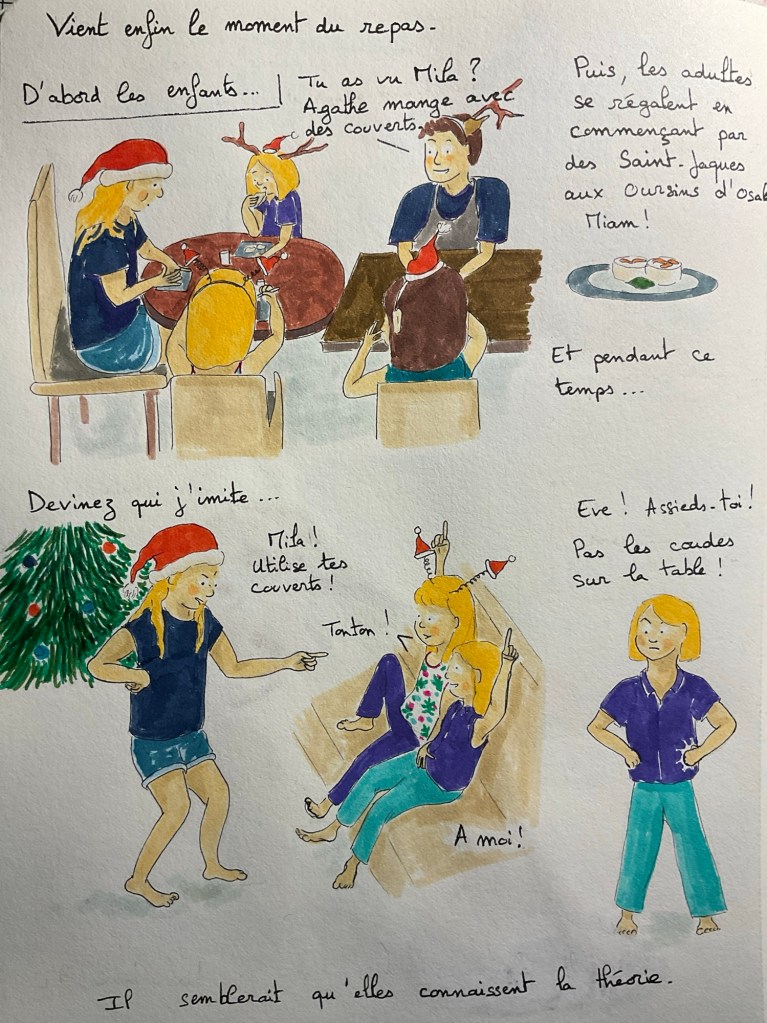 Vient enfin le moment du repas.
D'abord les enfants...
Tu as vu Mila ?
Agathe mange avec
des couverts.
Puis, les adultes
se régalent en
commençant par
des Saint-Jaques
aux Oursins d'Osak
Miam !
Et pendant ce
temps...
Devinez qui j'imite...
Mila !
Utilise tes
couverts !
Tonton !
A moi !
Eve ! Assieds-toi !
Pas les coudes
sur la table !
Il semblerait qu'elles connaissent la théorie.